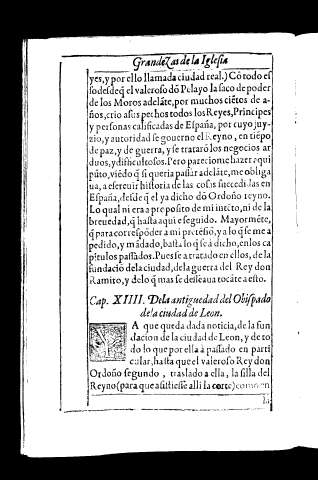 Grandezas de la Iglesia
yes, y por ello llamada ciudad real.) Cō todo es
so desdeq̄ el valeroso dō Pelayo la saco de poder
de los Moros adelāte, por muchos ciētos de a-
ños, crio a sus pechos todos los Reyes, Principes
y personas calificadas de España, por cuyo juy-
zio, y autoridad se gouerno el Reyno, en tiēpo
de paz, y de guerra, y se tratarō los negocios ar
duos, y dificultosos. Pero pareciome hazer aqui
pūto, viēdo q̄ si queria passar adelāte, me obliga
ua, a escreuir historia de las cosas succedidas en
España, desde q̄ el ya dicho dō Ordoño reyno.
Lo qual ni era a proposito de mi intēto, ni de la
breuedad, q̄ hasta aqui e seguido. Mayormēte,
q̄ para corresponder a mi pretēsiō, y a lo q̄ se me a
pedido, y mādado, basta lo q̄ se à dicho, en los ca
pitulos passados. Pues se a tratado en ellos, de la
fundaciō de la ciudad, de la guerra del Rey don
Ramiro, y de lo q̄ mas se desseaua tocāte a esto.
Cap. XIIII. De la antiguedad del Obispado
de la ciudad de Leon.
YA que queda dada noticia, de la fun
dacion de la ciudad de Leon, y de to
do lo que por ella à passado en parti
cular, hasta que el valeroso Rey don
Ordoño segundo, traslado a ella, la silla del
Reyno (para que assistiesse alli la corte) como en
la